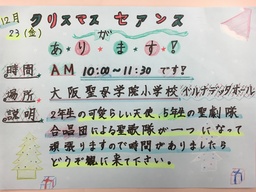 12月
23(金)
クリスマス セアンス
が
あ・り・ま・す!
時間 AM 10:00〜11:30 です!
場所 大阪聖母学院小学校 ベルナデッタホール
説明 2年生の可愛らしい天使、5年生の聖劇隊
合唱団による聖歌隊が一つになって
頑張りますので時間がありましたら
どうぞ観に来て下さい。